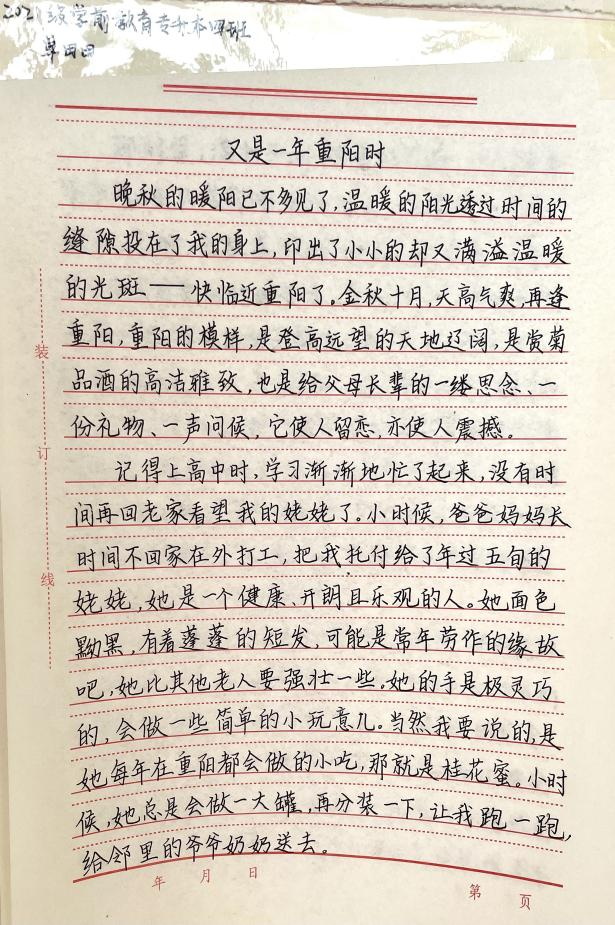 2021级学前教育专升本四班
单田田
又是一年重阳时
晚秋的暖阳已不多见了,温暖的阳光透过时间的
缝隙投在了我的身上,印出了小小的却又满溢温暖
的光斑——快临近重阳了。金秋十月,天高气爽,再逢
重阳,重阳的模样,是登高远望的天地辽阔,是赏菊
品酒的高洁雅致,也是给父母长辈的一缕思念、一
份礼物、一声问候,它使人留恋,亦使人震撼。
记得上高中时,学习渐渐地忙了起来,没有时
间再回老家看望我的姥姥了。小时候,爸爸妈妈长
时间不回家在外打工,把我托付给了年过五旬的
姥姥,她是一个健康、开朗且乐观的人。她面色
黝黑,有着蓬蓬的短发,可能是常年劳作的缘故
吧,她比其他老人要强壮一些。她的手是极灵巧
的,会做一些简单的小玩意儿。当然我要说的,是
她每年在重阳都会做的小吃,那就是桂花蜜。小时
候,她总是会做一大罐,再分装一下,让我跑一跑,
给邻里的爷爷奶奶送去。
装
订
线
年 月 日
第 页